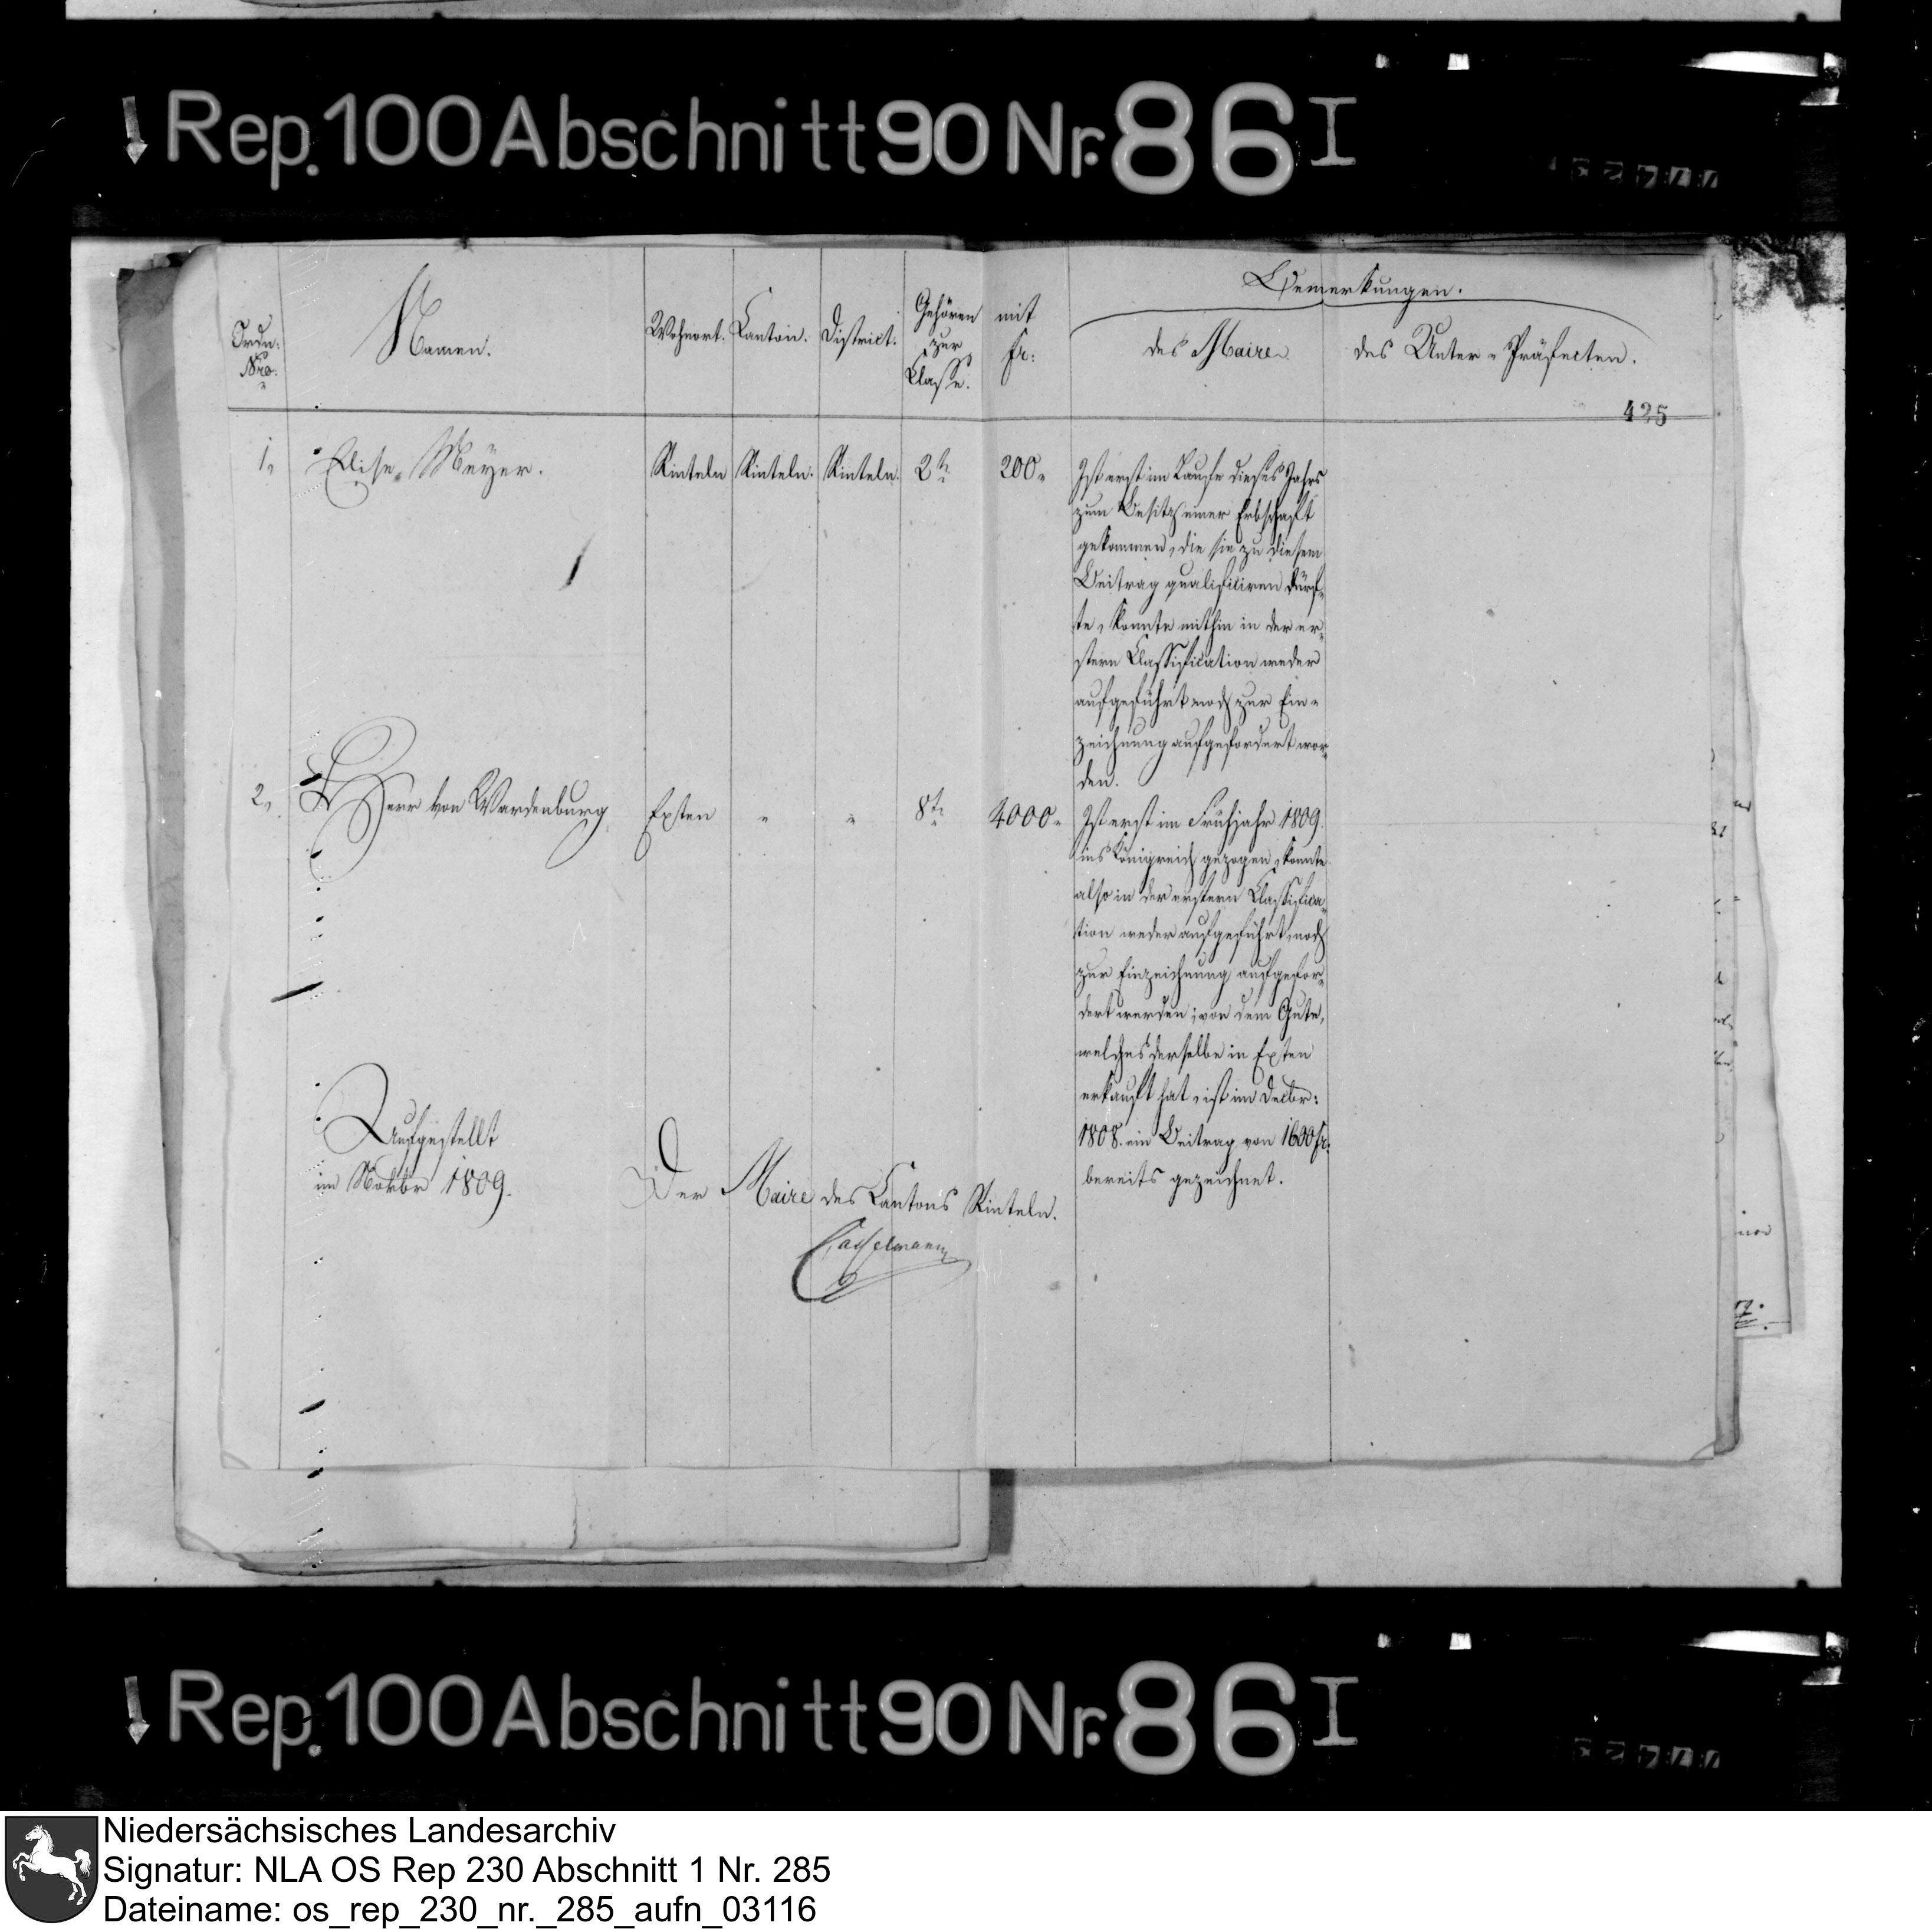 Rep. 100 Abschnitt 90 Nr. 86 I
Bemerkungen.
Ordn: Nro.
Namen.
Wohnort.
Canton.
District.
Gehören zur Classe.
mit fr:
des Maire
des Unter-Präfecten.
425
1, Elise Meyer. Rinteln Rinteln. Rinteln. 2te 200"
Ist erst im Laufe dieses Jahrs
zum Besitz einer Erbschaft
gekommen, die sie zu diesem
Beitrag qualificiren dürf-
te, konnte mithin in der er-
stern Classification weder
aufgeführt noch zur Ein-
zeichnung aufgefordert wor
den.
2, Herr von Wardenburg Exten " " 8te 4000"
Ist erst im Frühjahr 1809.
ins Königreich gezogen, konnte
also in der erstern Classifica-
tion weder aufgeführt, noch
zur Einzeichnung aufgefor-
dert werden; von dem Gute,
welches derselbe in Exten
erkauft hat, ist im Decbr:
1808. ein Beitrag von 1600 fr.
bereits gezeichnet.
Aufgestellt
im Novbr 1809.
Der Maire des Cantons Rinteln.
Casselmann
Rep. 100 Abschnitt 90 Nr. 86 I
Niedersächsisches Landesarchiv
Signatur: NLA OS Rep 230 Abschnitt 1 Nr. 285
Dateiname: os_rep_230_nr._285_aufn_03116